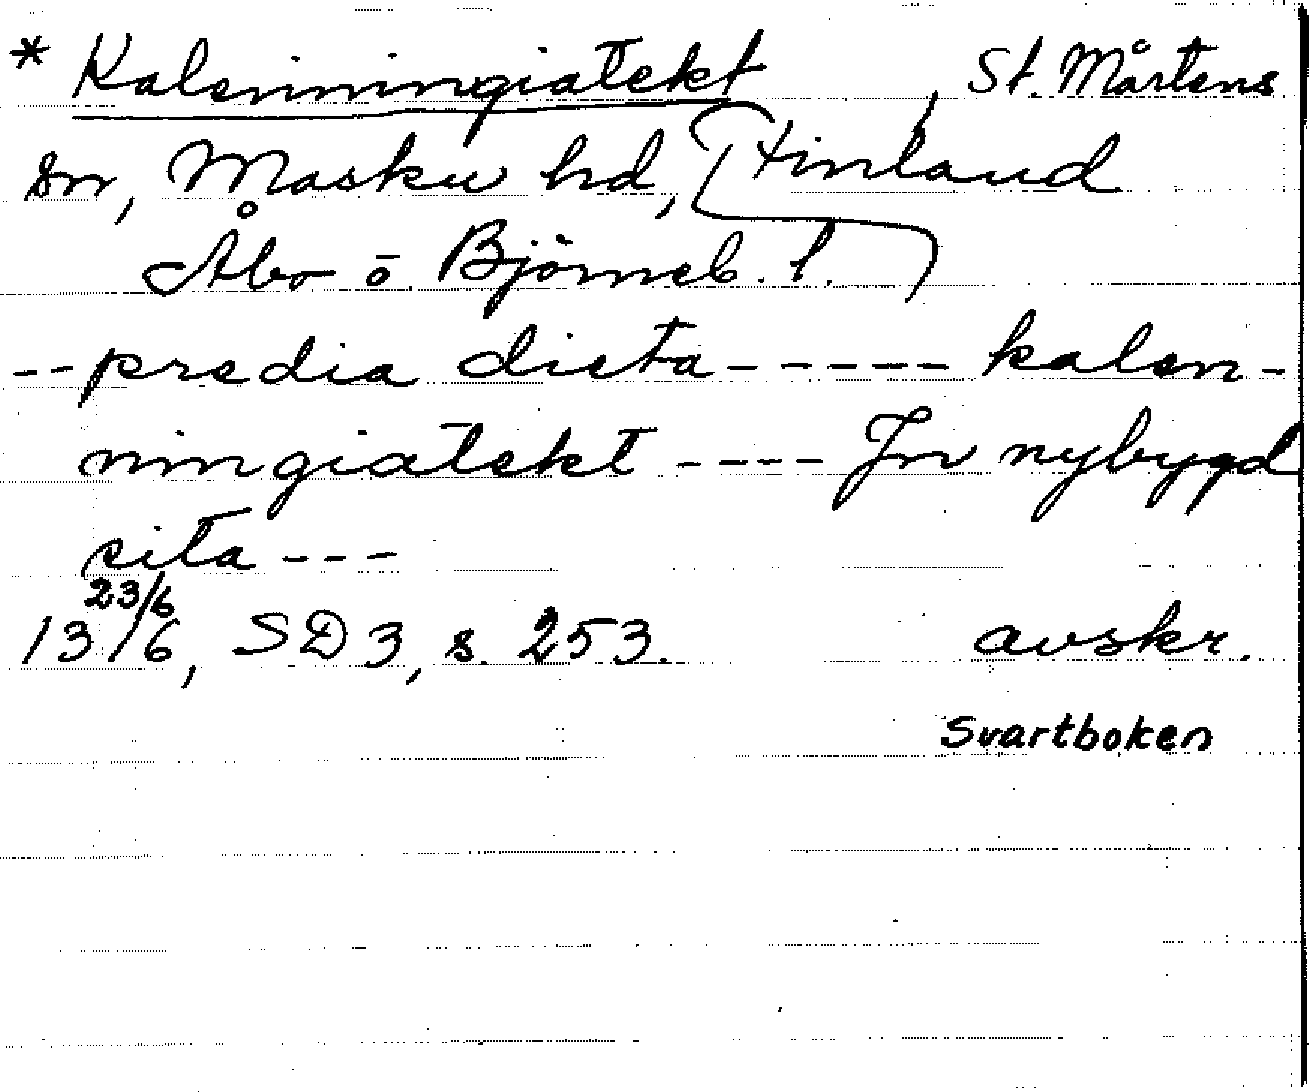 * Kalenningiatekt, St. Mårtens
sn, Masku hd, Finland
Åbo o. Björneb. l.
-- predia dicta ----- kalen-
ningiatekt ---- Jn nybygd
sita ---
23/6
1316, SD 3, s. 253. avskr.
Svartboken